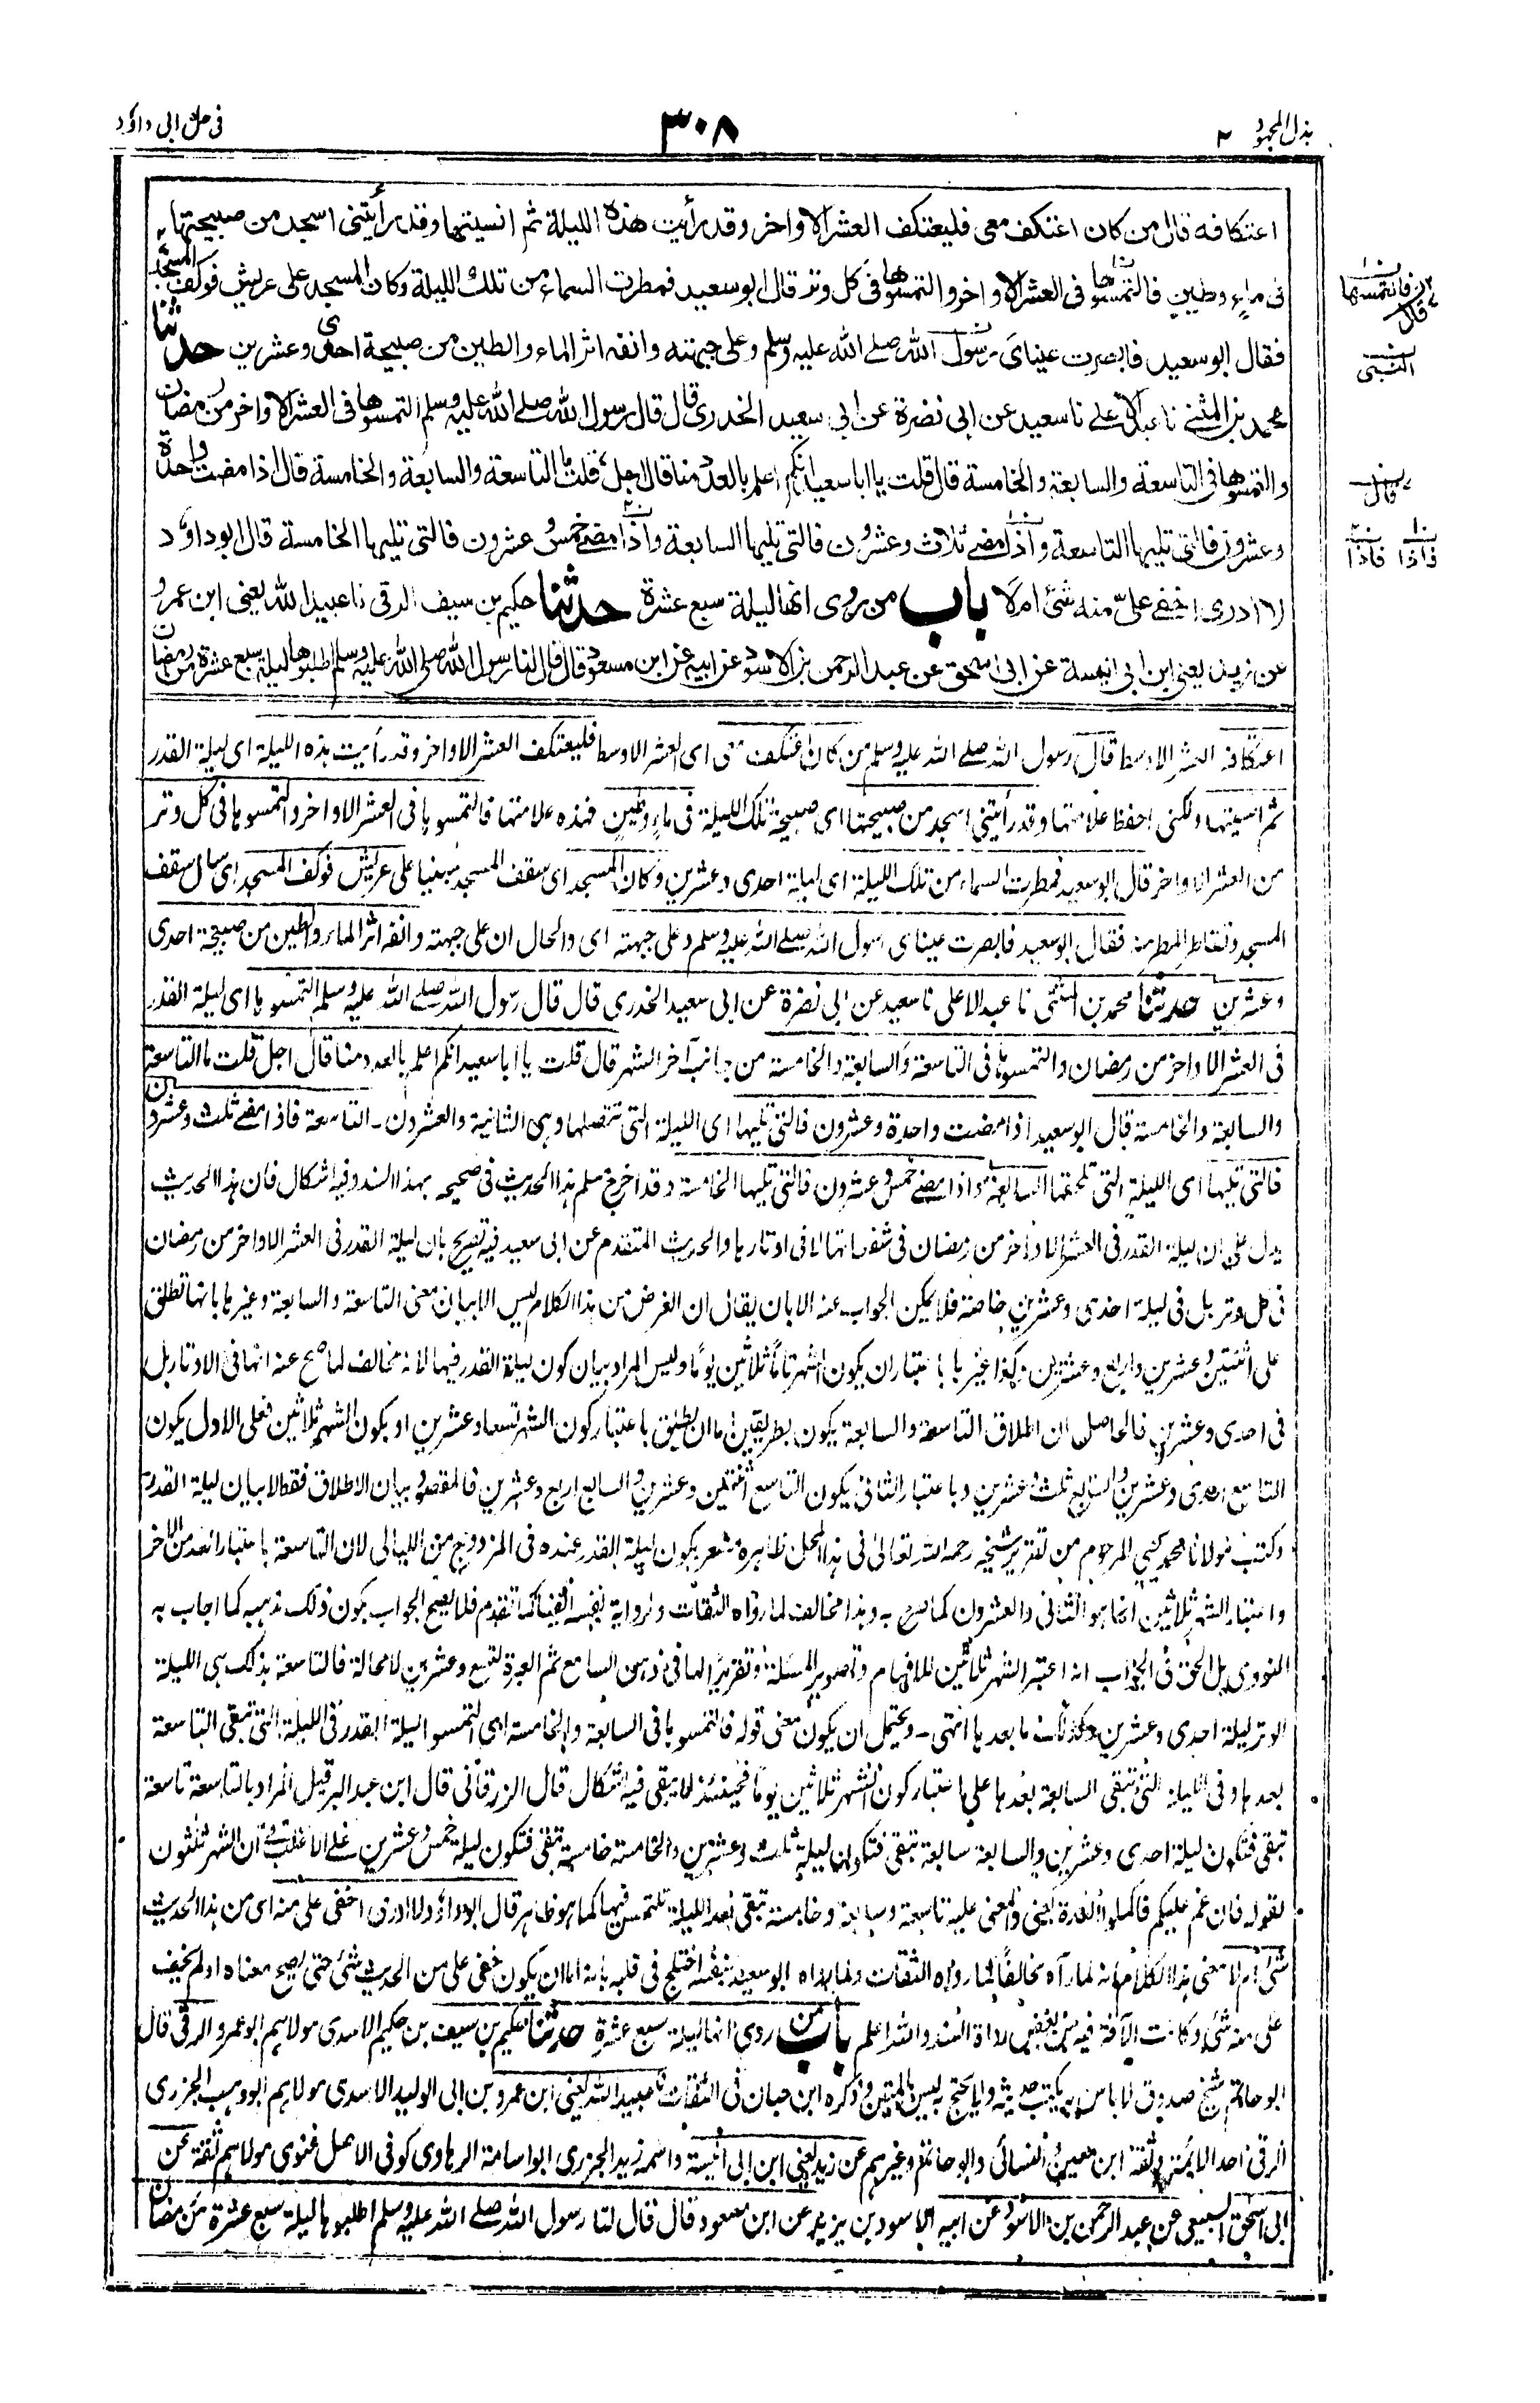 بذل المجهود ٢
٣٠٨
فى حل ابى داؤد
اعتكافه قال من كان اعتكف معى فليعتكف العشر الاواخر وقد رأيت هذه الليلة ثم انسيتها وقد رأيتنى اسجد من صبيحتها
فى ماء وطين فالتمسوها فى العشر الاواخر والتمسوها فى كل وتر قال ابو سعيد فمطرت السماء من تلك الليلة وكان المسجد على عريش فوكف المسجد
فقال ابو سعيد فابصرت عيناى رسول الله صلى الله عليه وسلم وعلى جبهته وانفه اثر الماء والطين من صبيحة احدى وعشرين حدثنا
محمد بن المثنى نا عبد الاعلى نا سعيد عن ابى نضرة عن ابى سعيد الخدرى قال قال رسول الله صلى الله عليه وسلم التمسوها فى العشر الاواخر من رمضان
والتمسوها فى التاسعة والسابعة والخامسة قال قلت يا ابا سعيد انكم اعلم بالعدد منا قال اجل قلت ما التاسعة والسابعة والخامسة قال اذا مضت واحدة
وعشرون فالتى تليها التاسعة واذا مضى ثلاث وعشرون فالتى تليها السابعة واذا مضى خمس وعشرون فالتى تليها الخامسة قال ابو داؤد
لا ادرى اخفى علىّ منه شئ ام لا باب من روى انها ليلة سبع عشرة حدثنا حكيم بن سيف الرقى نا عبيد الله يعنى ابن عمرو
عن زيد يعنى ابن ابى انيسة عن ابى اسحق عن عبد الرحمن بن الاسود عن ابيه عن ابن مسعود قال قال لنا رسول الله صلى الله عليه وسلم اطلبوها ليلة سبع عشرة من رمضان
فالتمسها
قال
النبى
قال
فاذا فاذا
اعتكافه العشر الاوسط قال رسول الله صلے الله عليه وسلم من كان اعتكف معى اى العشر الاوسط فليعتكف العشر الاواخر وقد رأيت هذه الليلة اى ليلة القدر
ثم انسيتها ولكنى احفظ علامتها وقد رأيتنى اسجد من صبيحتها اى صبيحة تلك الليلة فى ماء وطين فهذه علامتها فالتمسوها فى العشر الاواخر والتمسوها فى كل وتر
من العشر الاواخر قال ابو سعيد فمطرت السماء من تلك الليلة اى ليلة احدى وعشرين وكان المسجد اى سقف المسجد مبنيا على عريش فوكف المسجد اى سال سقف
المسجد وتقاطر المطر منه فقال ابو سعيد فابصرت عيناى رسول الله صلے الله عليه وسلم وعلى جبهته اى والحال ان على جبهته وانفه اثر الماء والطين من صبيحة احدى
وعشرين حدثنا محمد بن المثنى نا عبد الاعلى نا سعيد عن ابى نضرة عن ابى سعيد الخدرى قال قال رسول الله صلے الله عليه وسلم التمسوها اى ليلة القدر
فى العشر الاواخر من رمضان والتمسوها فى التاسعة والسابعة والخامسة من جانب آخر الشهر قال قلت يا ابا سعيد انكم اعلم بالعدد منا قال اجل قلت ما التاسعة
والسابعة والخامسة قال ابو سعيد اذا مضت واحدة وعشرون فالتى تليها اى الليلة التى تتصلها وهى الثانية والعشرون - التاسعة فاذا مضے ثلث وعشرون
فالتى تليها اى الليلة التى تلحقها السابعة واذا مضے خمس وعشرون فالتى تليها الخامسة وقد اخرج مسلم هذا الحديث فى صحيحه بهذا السند وفيه اشكال فان هذا الحديث
يدل على ان ليلة القدر فى العشر الاواخر من رمضان فى شفعاتها لا فى اوتارها والحديث المتقدم عن ابى سعيد فيه تصريح بان ليلة القدر فى العشر الاواخر من رمضان
فى كل وتر بل فى ليلة احدى وعشرين خاصة فلا يمكن الجواب عنه الا بان يقال ان الغرض من هذا الكلام ليس الا بيان معنى التاسعة والسابعة وغيرها بانها تطلق
على اثنتين وعشرين واربع وعشرين وهكذا غيرها باعتبار ان يكون الشهر تاما ثلاثين يومًا وليس المراد بيان كون ليلة القدر فيها لانه مخالف لما صح عنه انها فى الاوتار بل
فى احدى وعشرين فالحاصل ان اطلاق التاسعة والسابعة يكون بطريقين اما ان يطلق باعتبار كون الشهر تسعا وعشرين او يكون الشهر ثلاثين فعلى الاول يكون
التاسع احدى وعشرين والسابع ثلث وعشرين وباعتبار الثانى يكون التاسع اثنتين وعشرين والسابع اربع وعشرين فالمقصود بيان الاطلاق فقط لا بيان ليلة القدر
وكتب مولانا محمد يحيى المرحوم من تقرير شيخه رحمه الله تعالى فى هذا المحل ظاهره مشعر بكون ليلة القدر عنده فى المزدوج من الليالى لان التاسعة باعتبار العد من الآخر
واعتبار الشهر ثلاثين انما هو الثانى والعشرون كما صرح به وهذا مخالف لما رواه الثقات ولرواية نفسه ايضا كما تقدم فلا يصح الجواب بكون ذلك مذهبه كما اجاب به
النووى بل الحق فى الجواب انه اعتبر الشهر ثلاثين للافهام وتصوير المسئلة وتقريرًا لها فى ذهن السامع ثم العبرة لتسع وعشرين لا محالة فالتاسعة بذلك هى الليلة
الوتر ليلة احدى وعشرين وكذلك ما بعدها انتهى - ويحتمل ان يكون معنى قوله فالتمسوها فى السابعة والخامسة اى التمسوا ليلة القدر فى الليلة التى تبقى التاسعة
بعدها وفى الليلة التى تبقى السابعة بعدها على اعتبار كون الشهر ثلاثين يومًا فحينئذ لا يبقى فيه اشكال قال الزرقانى قال ابن عبد البر قيل المراد بالتاسعة تاسعة
تبقى فتكون ليلة احدى وعشرين والسابعة سابعة تبقى فتكون ليلة ثلث وعشرين والخامسة خامسة تبقى فتكون ليلة خمس وعشرين على الاغلب فى ان الشهر ثلثون
لقوله فان غم عليكم فاكملوا العدة يعنى والمعنى عليه تاسعة وسابعة وخامسة تبقى بعد الليلة تلتمس فيها كما هو ظاهر قال ابو داؤد لا ادرى اخفى على منه اى من هذا الحديث
شئ ام لا معنى هذا الكلام انه لما رآه مخالفًا لما رواه الثقات ولما رواه ابو سعيد بنفسه اختلج فى قلبه بانه اما ان يكون خفى على من الحديث شئ حتى يصح معناه او لم يخف
على منه شئ وكانت الآفة فيه من بعض رواة السند والله اعلم باب من روى انها ليلة سبع عشرة حدثنا حكيم بن سيف بن حكيم الاسدى مولاهم ابو عمرو الرقى قال
ابو حاتم شيخ صدوق لا باس به يكتب حديثه ولا يحتج به ليس بالمتين وذكره ابن حبان فى الثقات نا عبيد الله يعنى ابن عمرو بن ابى الوليد الاسدى مولاهم ابو وهب الجزرى
الرقى احد الائمة وثقه ابن معين والنسائى وابو حاتم وغيرهم عن زيد يعنى ابن ابى انيسة واسمه زيد الجزرى ابو اسامة الرهاوى كوفى الاصل غنوى مولاهم ثقة عن
ابى اسحق السبيعى عن عبد الرحمن بن الاسود عن ابيه الاسود بن يزيد عن ابن مسعود قال قال لنا رسول الله صلے الله عليه وسلم اطلبوها ليلة سبع عشرة من رمضان